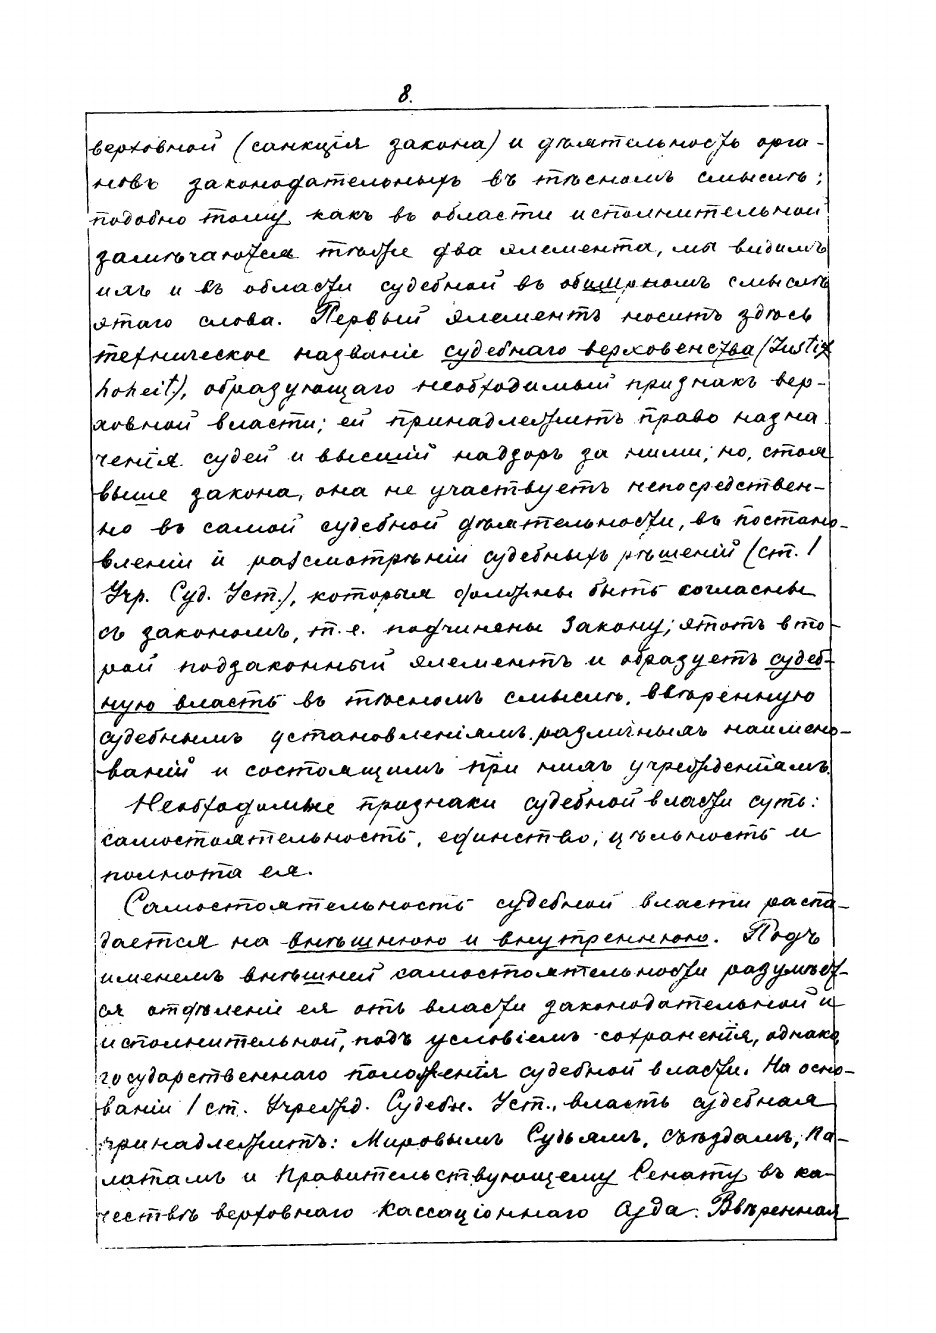 8.
верховной (санкція закона) и дѣятельность орга-
новъ законодательныхъ въ тѣсномъ смыслѣ;
подобно тому какъ въ области исполнительной
замѣчаются тѣже два элемента, мы видимъ
ихъ и въ области судебной въ обширномъ смыслѣ
этаго слова. Первый элементъ носитъ здѣсь
техническое названіе судебнаго верховенства (Justiz
hoheit), образующаго необходимый признакъ вер-
ховной власти; ей принадлежитъ право назна
ченія судей и высшій надзоръ за ними; но, стоя
выше закона, она не участвуетъ непосредствен-
но въ самой судебной дѣятельности, въ постано-
вленіи и разсмотрѣніи судебныхъ рѣшеній (ст. 1
Учр. Суд. Уст.), которыя должны быть согласны
съ закономъ, т. е. подчинены закону; этотъ вто-
рой подзаконный элементъ и образуетъ судеб-
ную власть въ тѣсномъ смыслѣ, ввѣренную
судебнымъ установленіямъ различныхъ наимено-
ваній и состоящимъ при нихъ учрежденіямъ.
Необходимые признаки судебной власти суть:
самостоятельность, единство, цѣльность и
полнота ея.
Самостоятельность судебной власти распа-
дается на внѣшнюю и внутреннюю. Подъ
именемъ внѣшней самостоятельности разумѣет-
ся отдѣленіе ея отъ власти законодательной и
исполнительной, подъ условіемъ сохраненія, однако,
государственнаго положенія судебной власти. На осно-
ваніи 1 ст. Учрежд. Судебн. Уст., власть судебная
принадлежитъ: Мировымъ Судьямъ, съѣздамъ, Па-
латамъ и Правительствующему Сенату въ ка-
чествѣ верховнаго Кассаціоннаго Суда. Ввѣренная